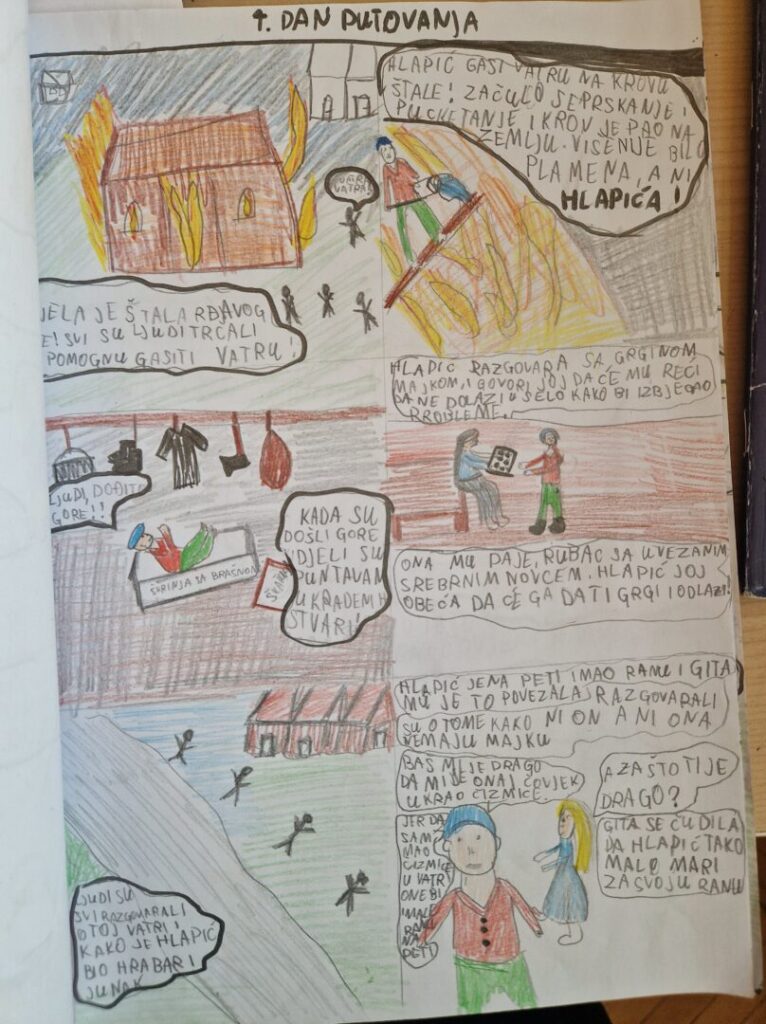 4. DAN PUTOVANJA
VATRA!
JELA JE ŠTALA RBAVOG
E! SVI SU LJUDI TRČALI
POMOGNU GASITI VATRU!
HLAPIĆ GASI VATRU NA KROVU
ŠTALE! ZAČULO SE PRSKANJE I
PUCKETANJE I KROV JE PAO NA
ZEMLJU. VIŠE NIJE BILO
PLAMENA, A NI
HLAPIĆA!
LJUDI, DOĐITE
GORE!!
ŠKRINJA SA BRAŠNOM
KADA SU
DOŠLI GORE
VIDJELI SU
PUN TAVAN
UKRADENIH
STVARI!
HLAPIĆ RAZGOVARA SA GRGINOM
MAJKOM, I GOVORI JOJ DA ĆE MU REĆI
DA NE DOLAZI U SELO KAKO BI IZBJEGAO
PROBLEME.
ONA MU DAJE, RUBAC SA UVEZANIM
SREBRNIM NOVCEM. HLAPIĆ JOJ
OBEĆA DA ĆE GA DATI GRGI I ODLAZI!
LJUDI SU
SVI RAZGOVARALI
O TOJ VATRI I
KAKO JE HLAPIĆ
BIO HRABAR I
JUNAK
HLAPIĆ JE NA PETI IMAO RANU I GITA
MU JE TO POVEZALA, RAZGOVARALI
SU O TOME KAKO NI ON A NI ONA
NEMAJU MAJKU
BAŠ MI JE DRAGO
DA MI JE ONAJ ČOVJEK
UKRAO ČIZMICE.
A ZAŠTO TI JE
DRAGO?
JER DA
SAM
IMAO
ČIZMICE
U VATRI
ONE BI
IMALE
RANU
NA
PETI
GITA SE ČUDILA
DA HLAPIĆ TAKO
MALO MARI
ZA SVOJU RANU